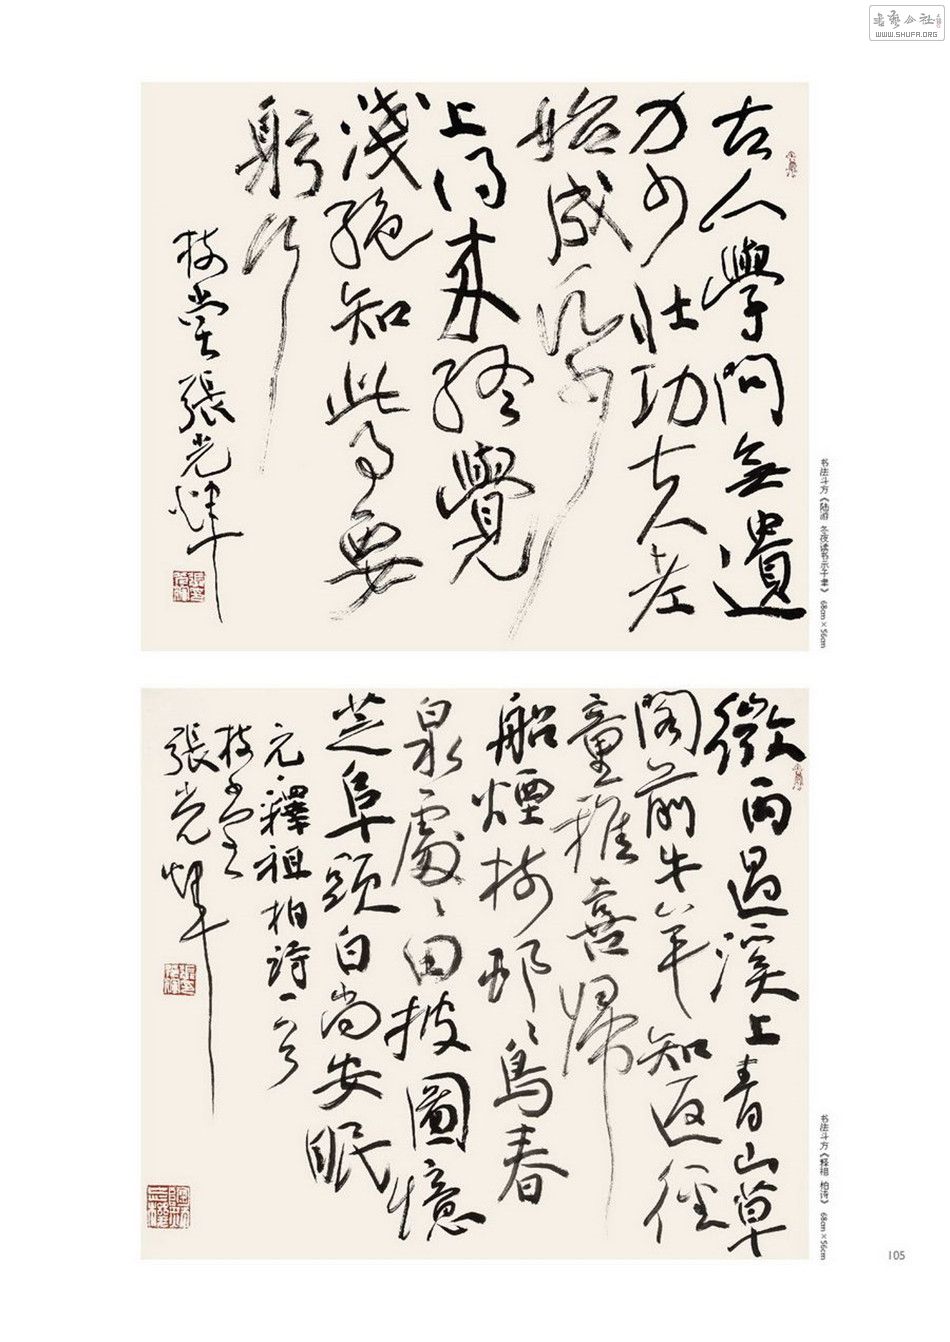 书艺公社
WWW.SHUFA.ORG
古人學問無遺
力少壮功夫老
始成紙
上得来終覺
淺絶知此事要
躬行
树堂張光
书法斗方《陆游 冬夜读书示子聿》 68cm×56cm
微雨過溪上青山草
閣前牛羊知返徑
童稚喜歸
船煙树邨邨鳥春
泉處處田披圖憶
芝阜頭白尚安眠
元釋祖柏詩一首
树堂
張光
书法斗方《释祖 柏诗》 68cm×56cm
105